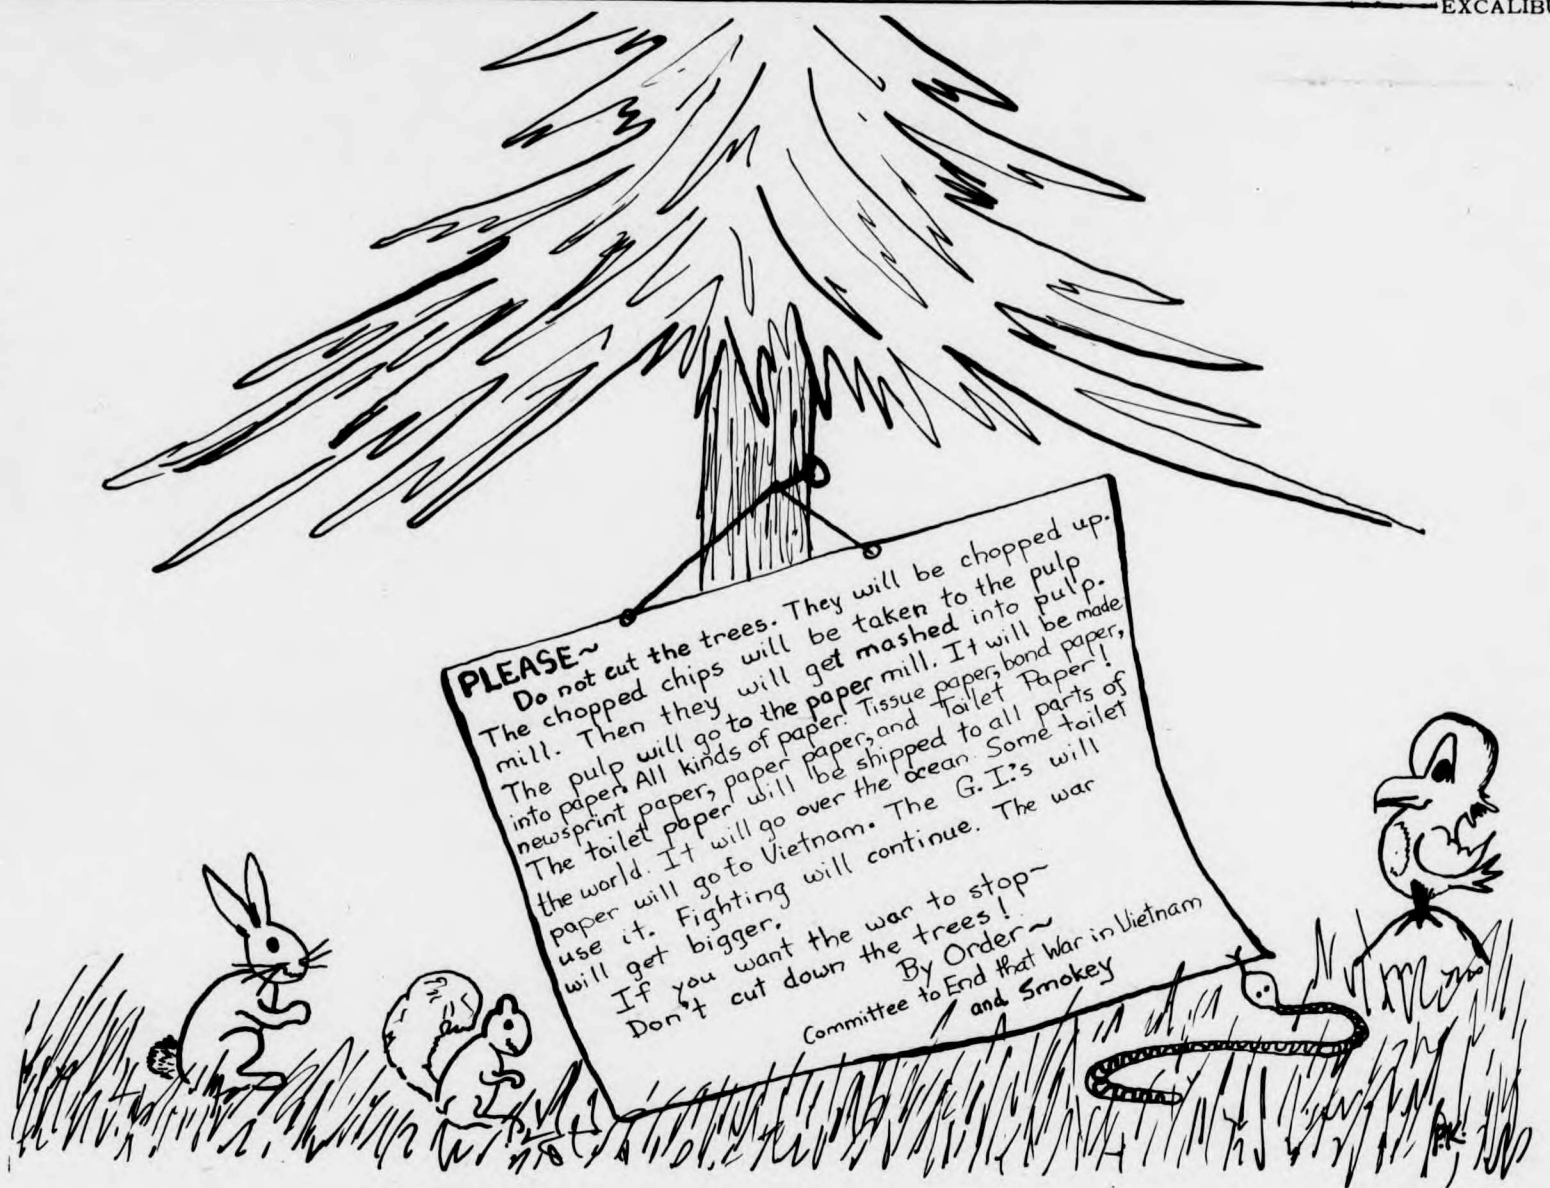 EXCALIBU
PLEASE~
Do not cut the trees. They will be chopped up.
The chopped chips will be taken to the pulp
mill. Then they will get mashed into pulp.
The pulp will go to the paper mill. It will be made
into paper. All kinds of paper. Tissue paper, bond paper,
newsprint paper, paper paper, and Toilet Paper!
The toilet paper will be shipped to all parts of
the world. It will go over the ocean. Some toilet
paper will go to Vietnam. The G.I.'s will
use it. Fighting will continue. The war
will get bigger.
If you want the war to stop~
Don't cut down the trees!
By Order~
Committee to End that War in Vietnam
and Smokey
P.K.